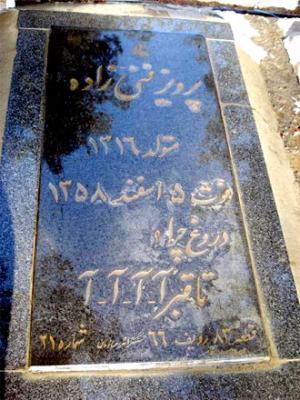 پرویز فنی زاده
متولد ۱۳۱۶
فوت ۵ اسفند ۱۳۵۸
دروغ چرا؟
تا قبر آ-آ-آ-آ
قطعه ۸۲ ردیف ۶۶ شماره ۲۱